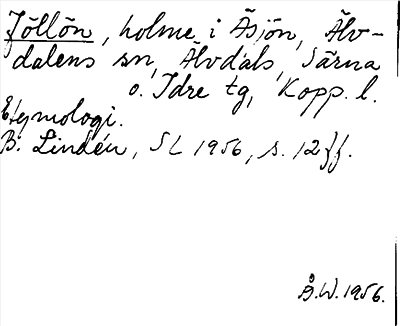 Jöllön, holme i Åsjön, Älv-
dalens sn, Älvdals, Särna
o. Idre tg, Kopp. l.
Etymologi.
B. Lindén, SL 1956, s. 12 ff.
Å.W. 1956.